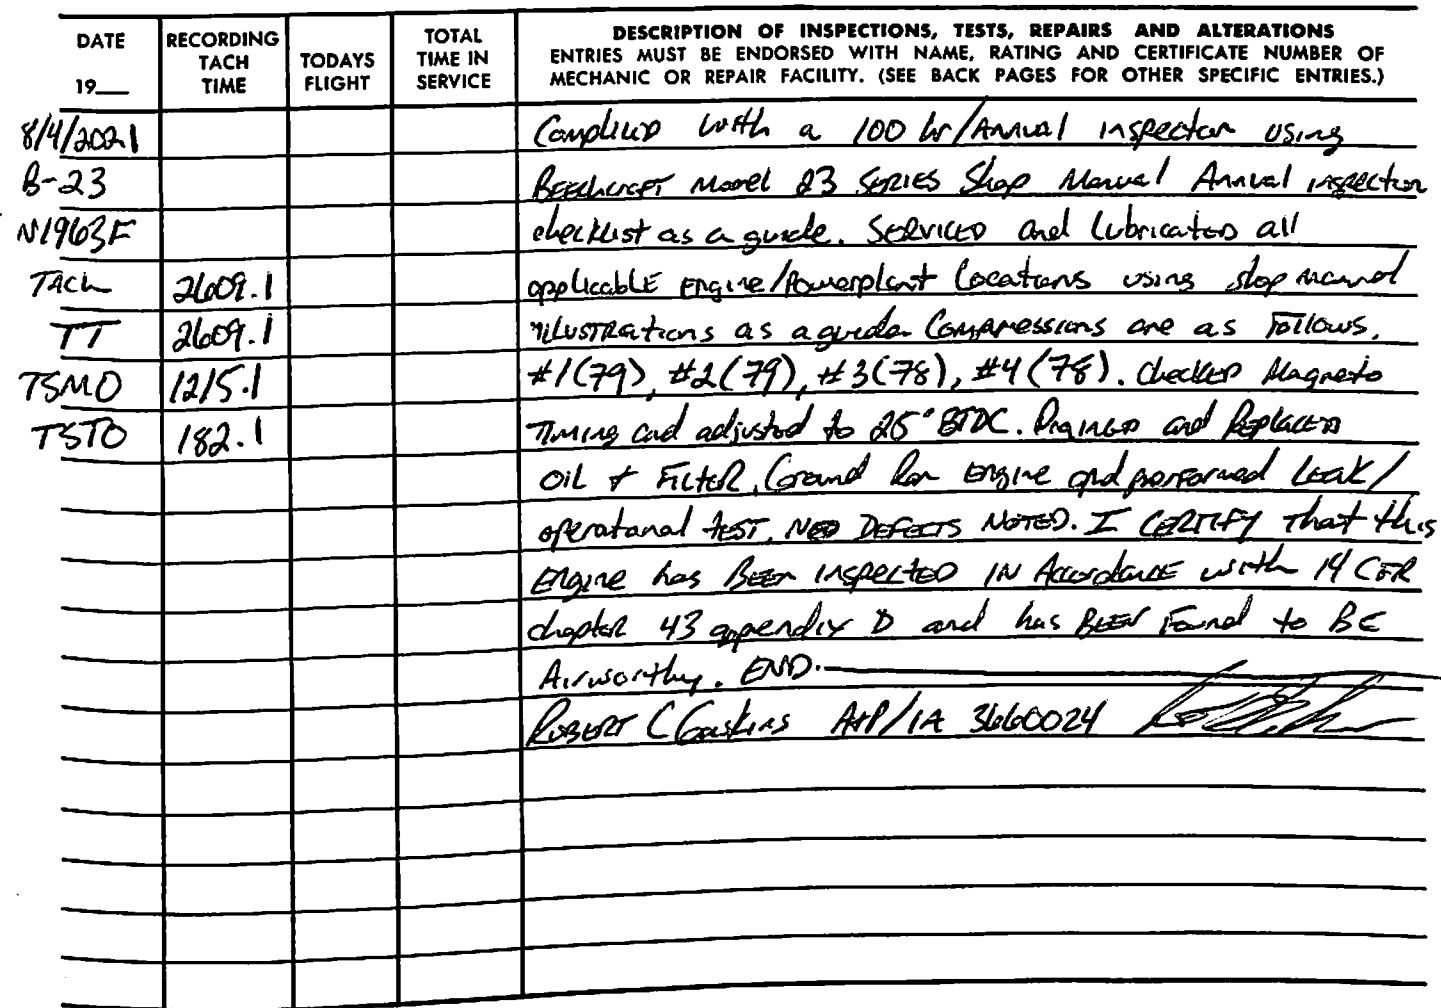 DATE 19__ RECORDING TACH TIME TODAYS FLIGHT TOTAL TIME IN SERVICE DESCRIPTION OF INSPECTIONS, TESTS, REPAIRS AND ALTERATIONS
ENTRIES MUST BE ENDORSED WITH NAME, RATING AND CERTIFICATE NUMBER OF
MECHANIC OR REPAIR FACILITY. (SEE BACK PAGES FOR OTHER SPECIFIC ENTRIES.)
8/4/2021 Complied with a 100 hr/Annual inspection using
B-23 Beechcraft Model 23 Series Shop Manual Annual inspection
N1963F checklist as a guide. Serviced and lubricated all
TACH 2609.1 applicable engine/Powerplant locations using shop manual
TT 2609.1 illustrations as a guide. Compressions are as follows.
TSMO 1215.1 #1(79), #2(79), #3(78), #4(78). Checked Magneto
TSTO 182.1 Timing and adjusted to 25° BTDC. Drained and Replaced
oil + Filter. Ground Ran engine and performed Leak/
operational test. NOO DEFECTS NOTED. I CERTIFY that this
Engine has BEEN inspected IN Accordance with 14 CFR
chapter 43 appendix D and has BEEN Found to BE
Airworthy. END.
ROBERT C Gaskins A&P/IA 3660024